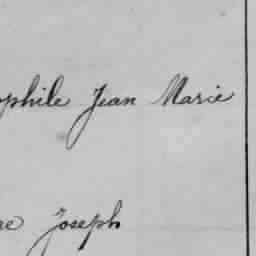 ophile Jean Marie
re Joseph